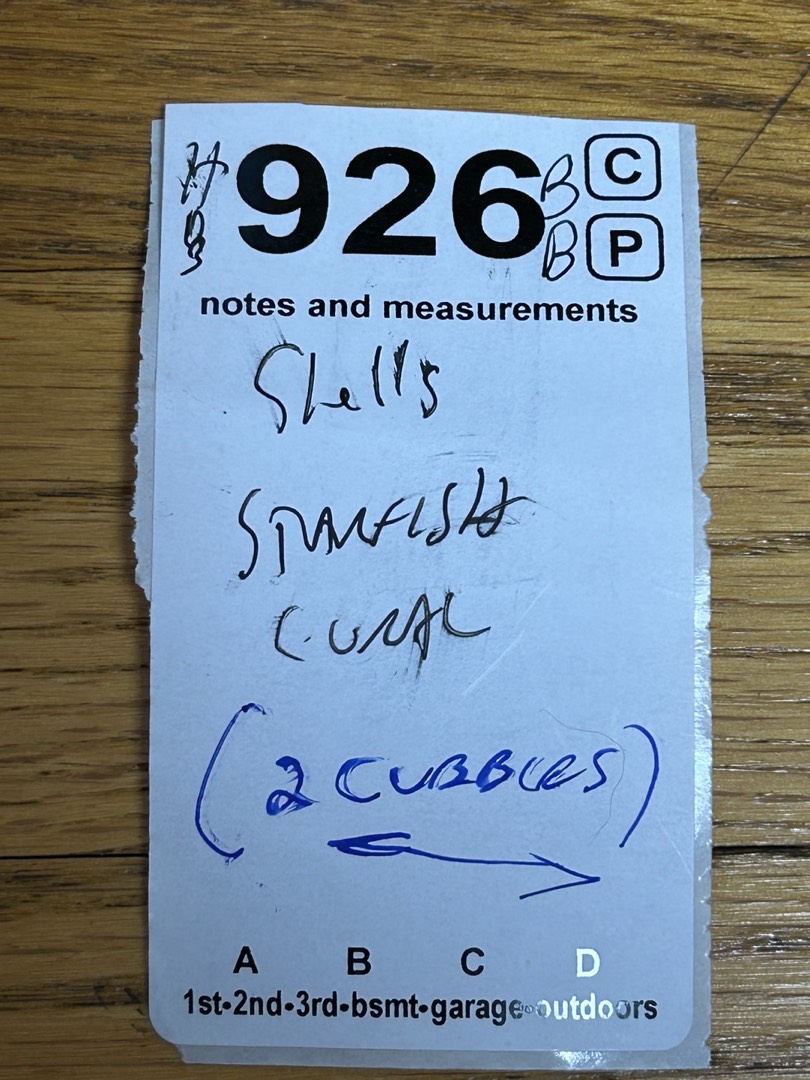 926 B C
B P
notes and measurements
Shells
STARFISH
CORAL
(2 CUBBIES)
A B C D
1st•2nd•3rd•bsmt•garage•outdoors